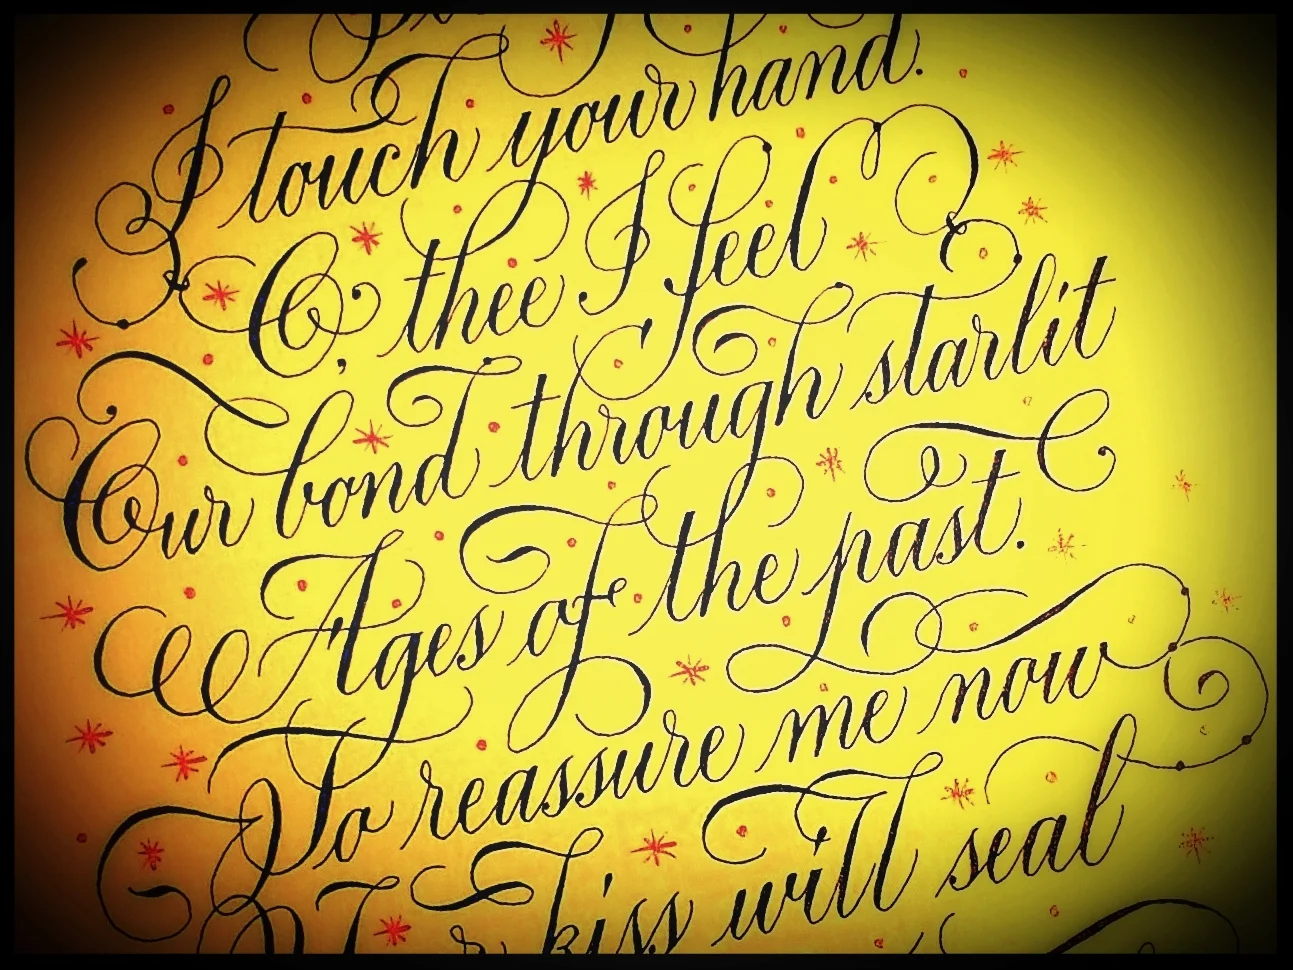 I touch your hand.
O, thee I feel
Our bond through starlit
Ages of the past.
To reassure me now
kiss will seal